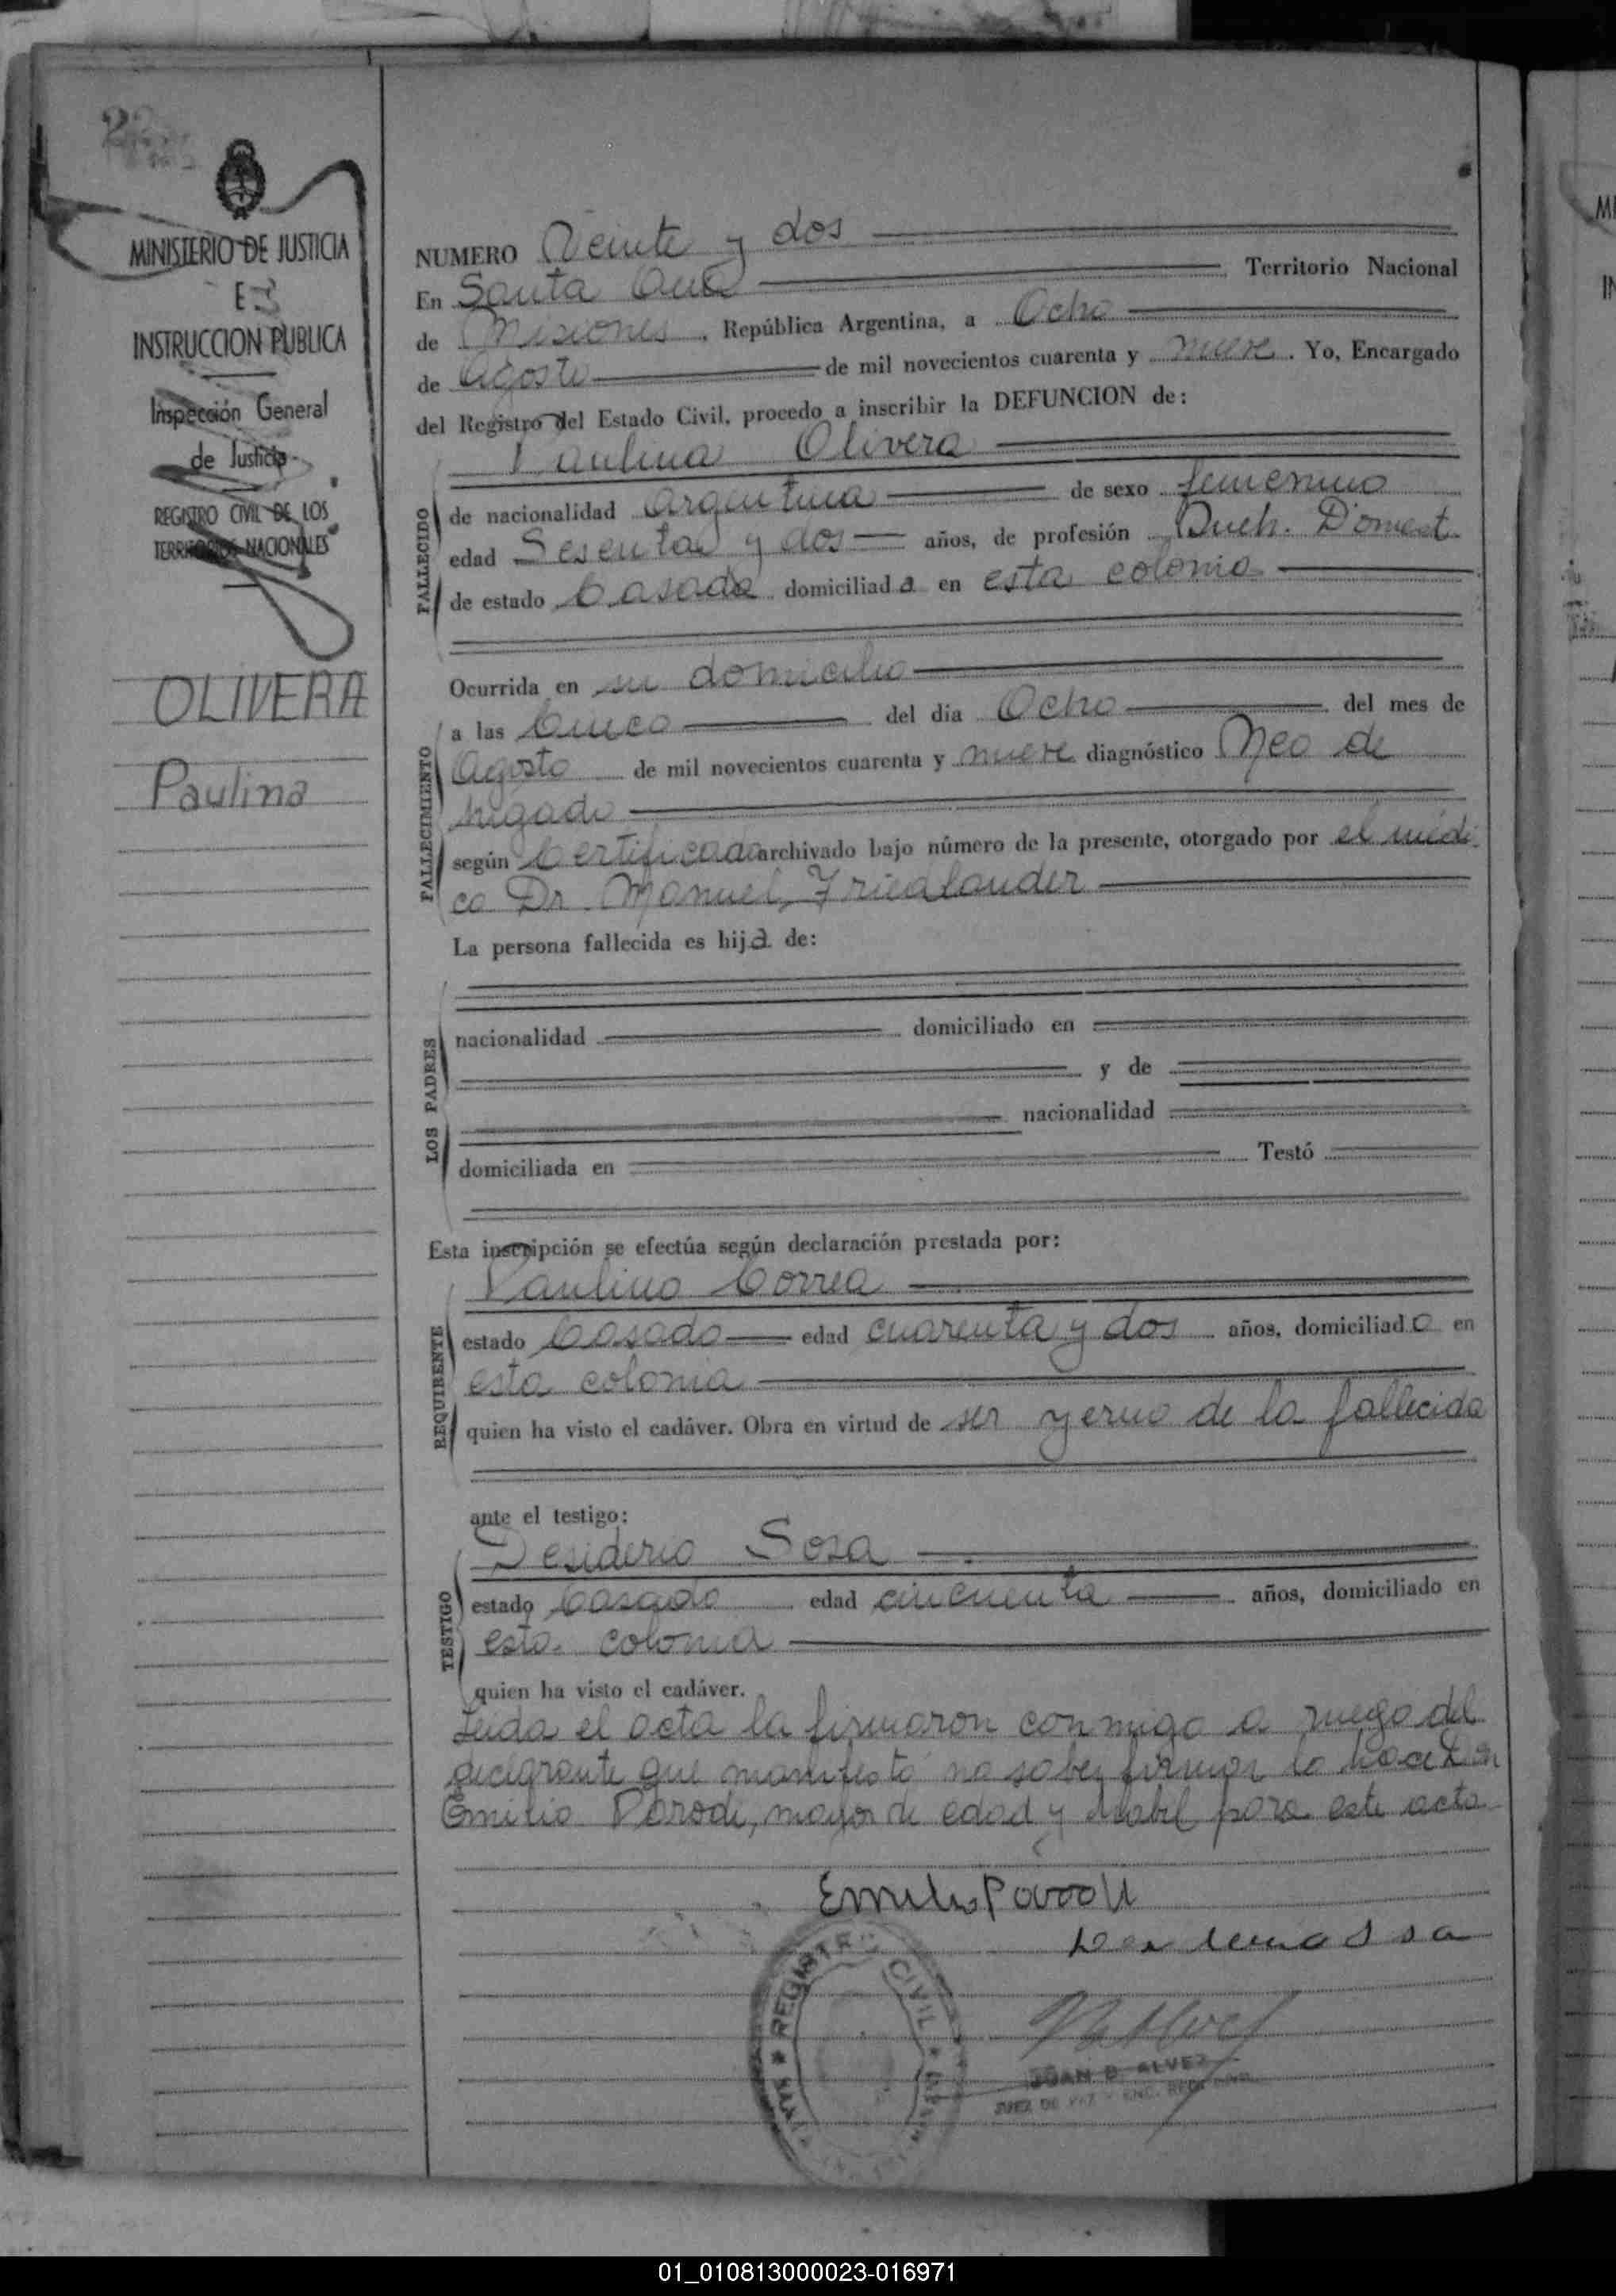 22
MINISTERIO DE JUSTICIA
E
INSTRUCCION PUBLICA
Inspección General
de Justicia
REGISTRO CIVIL DE LOS
TERRITORIOS NACIONALES
OLIVERA
Paulina
NUMERO Veinte y dos
En Santa Ana Territorio Nacional
de Misiones, República Argentina, a Ocho
de Agosto de mil novecientos cuarenta y nueve. Yo, Encargado
del Registro del Estado Civil, procedo a inscribir la DEFUNCION de:
Paulina Olivera
FALLECIDO
de nacionalidad argentina de sexo femenino
edad Sesenta y dos años, de profesión Queh. Domest.
de estado Casada domiciliada en esta colonia
Ocurrida en su domicilio
FALLECIMIENTO
a las Cinco del día Ocho del mes de
Agosto de mil novecientos cuarenta y nueve diagnóstico Neo de
higado
según Certificado archivado bajo número de la presente, otorgado por el médi
co Dr. Manuel Friedlander
La persona fallecida es hija de:
LOS PADRES
nacionalidad domiciliado en
y de
nacionalidad
domiciliada en Testó
Esta inscripción se efectúa según declaración prestada por:
Paulino Correa
REQUIRENTE
estado Casado edad cuarenta y dos años, domiciliado en
esta colonia
quien ha visto el cadáver. Obra en virtud de ser yerno de la fallecida
ante el testigo:
Desiderio Sosa
TESTIGO
estado Casado edad cincuenta años, domiciliado en
esta colonia
quien ha visto el cadáver.
Leida el acta la firmaron conmigo a ruego del
declarante que manifestó no saber firmar lo hace Don
Emilio Parodi, mayor de edad y habil para este acto
Emilio Parodi
REGISTRO CIVIL
JUAN B. ALVEZ
JUEZ DE PAZ - ENC. REG.
01_010813000023-016971